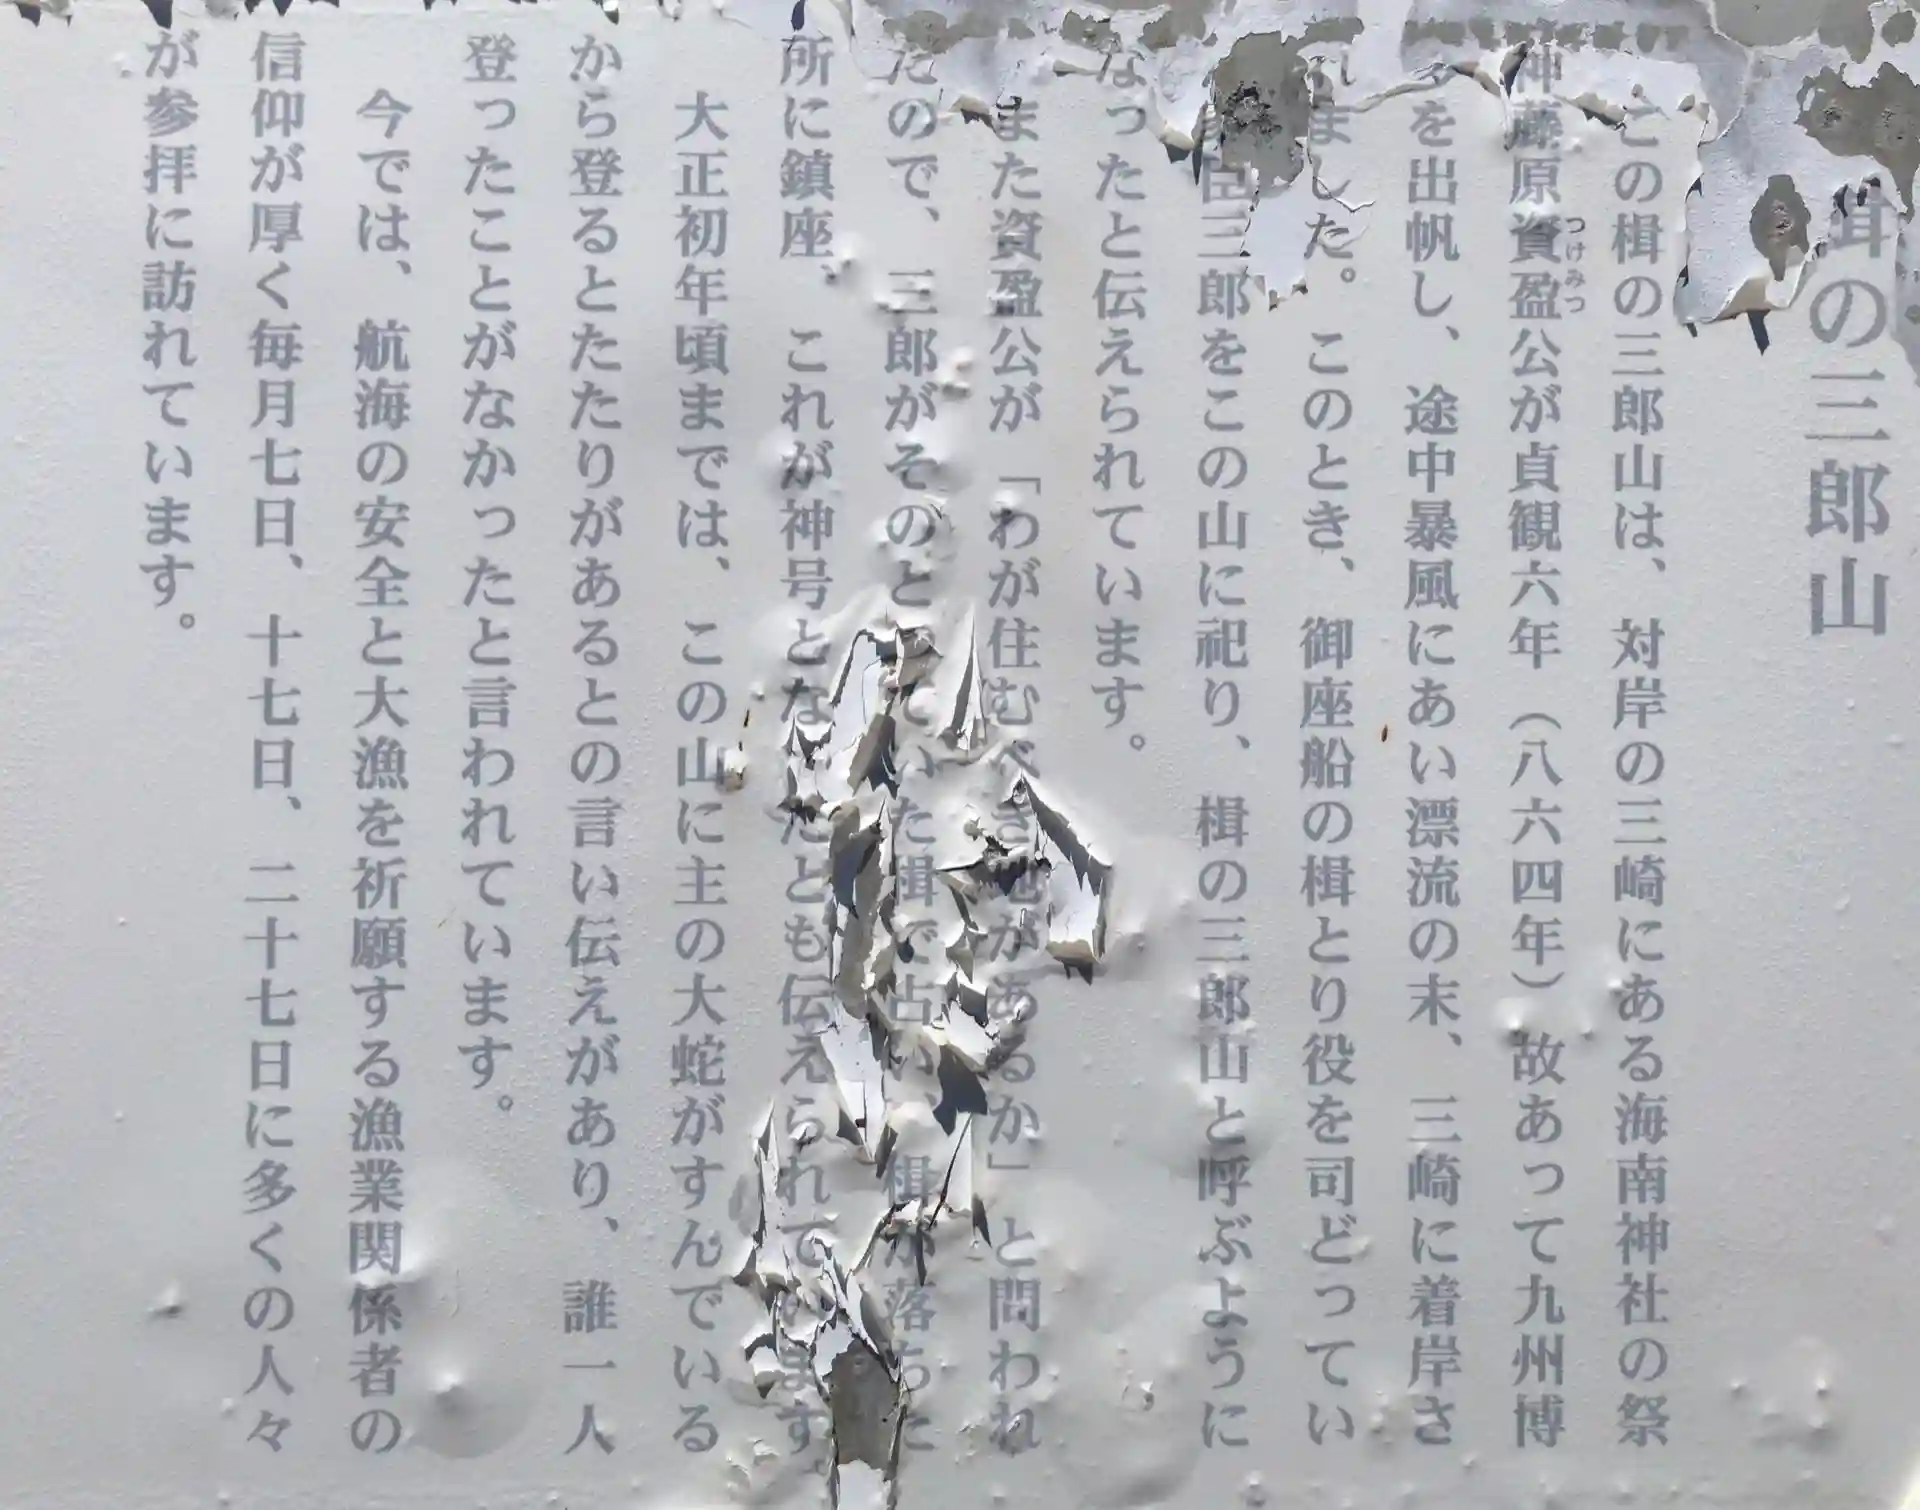 楫の三郎山
この楫の三郎山は、対岸の三崎にある海南神社の祭
神藤原資盈公が貞観六年（八六四年）故あって九州博
つけみつ
を出帆し、途中暴風にあい漂流の末、三崎に着岸さ
れました。このとき、御座船の楫とり役を司どってい
臣三郎をこの山に祀り、楫の三郎山と呼ぶように
なったと伝えられています。
また資盈公が「わが住むべき地があるか」と問われ
たので、三郎がそのとっていた楫で占い、楫が落ちた
所に鎮座、これが神号となったとも伝えられています。
大正初年頃までは、この山に主の大蛇がすんでいる
から登るとたたりがあるとの言い伝えがあり、誰一人
登ったことがなかったと言われています。
今では、航海の安全と大漁を祈願する漁業関係者の
信仰が厚く毎月七日、十七日、二十七日に多くの人々
が参拝に訪れています。